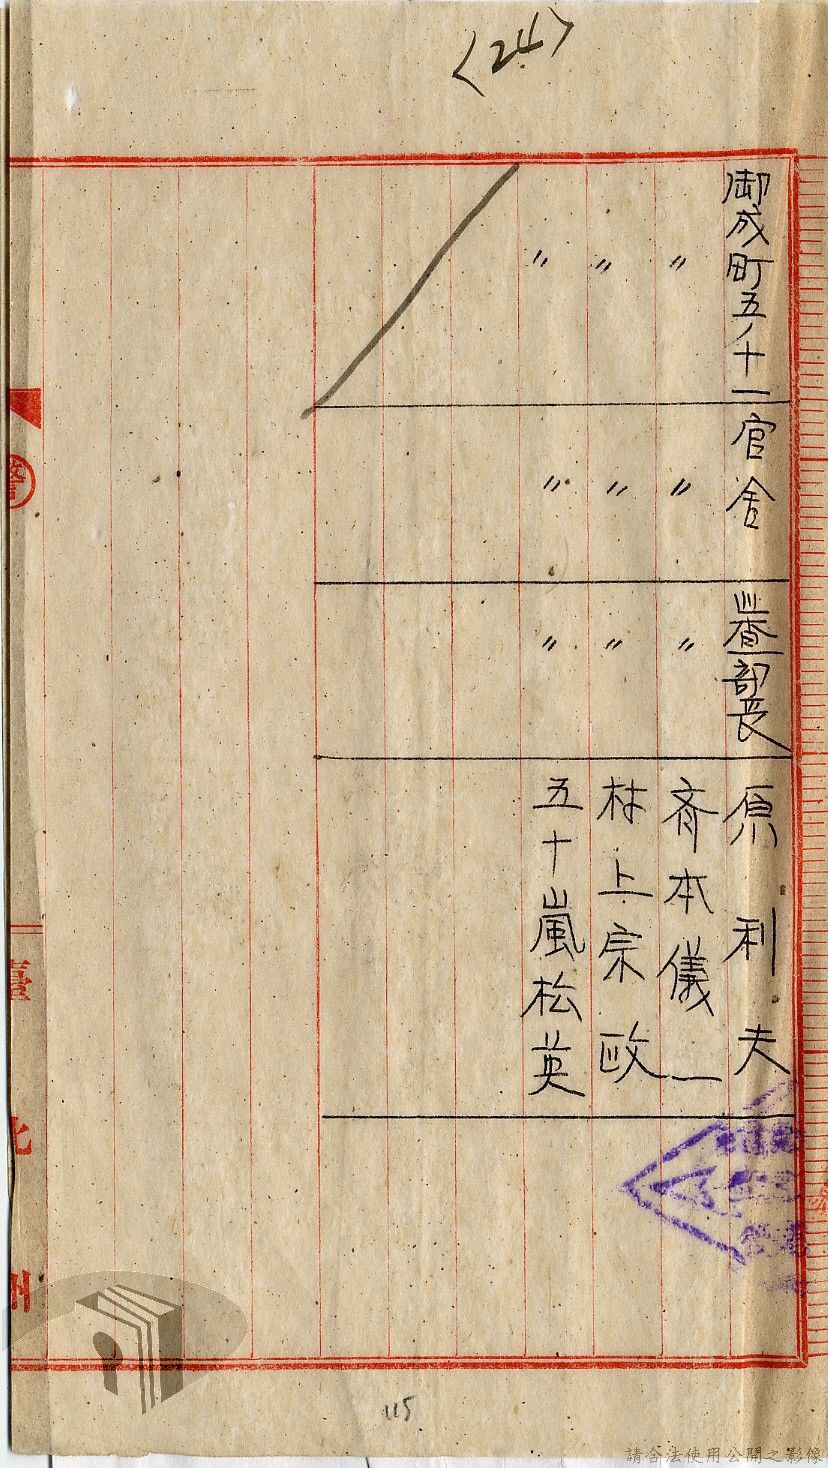 (24)
御成町五ノ十一 官舎 巡査部長 原利夫
〃 〃 〃 斉本儀一
〃 〃 〃 村上宗政
〃 〃 〃 五十嵐松英
警
臺北州
115
請合法使用公開之影像